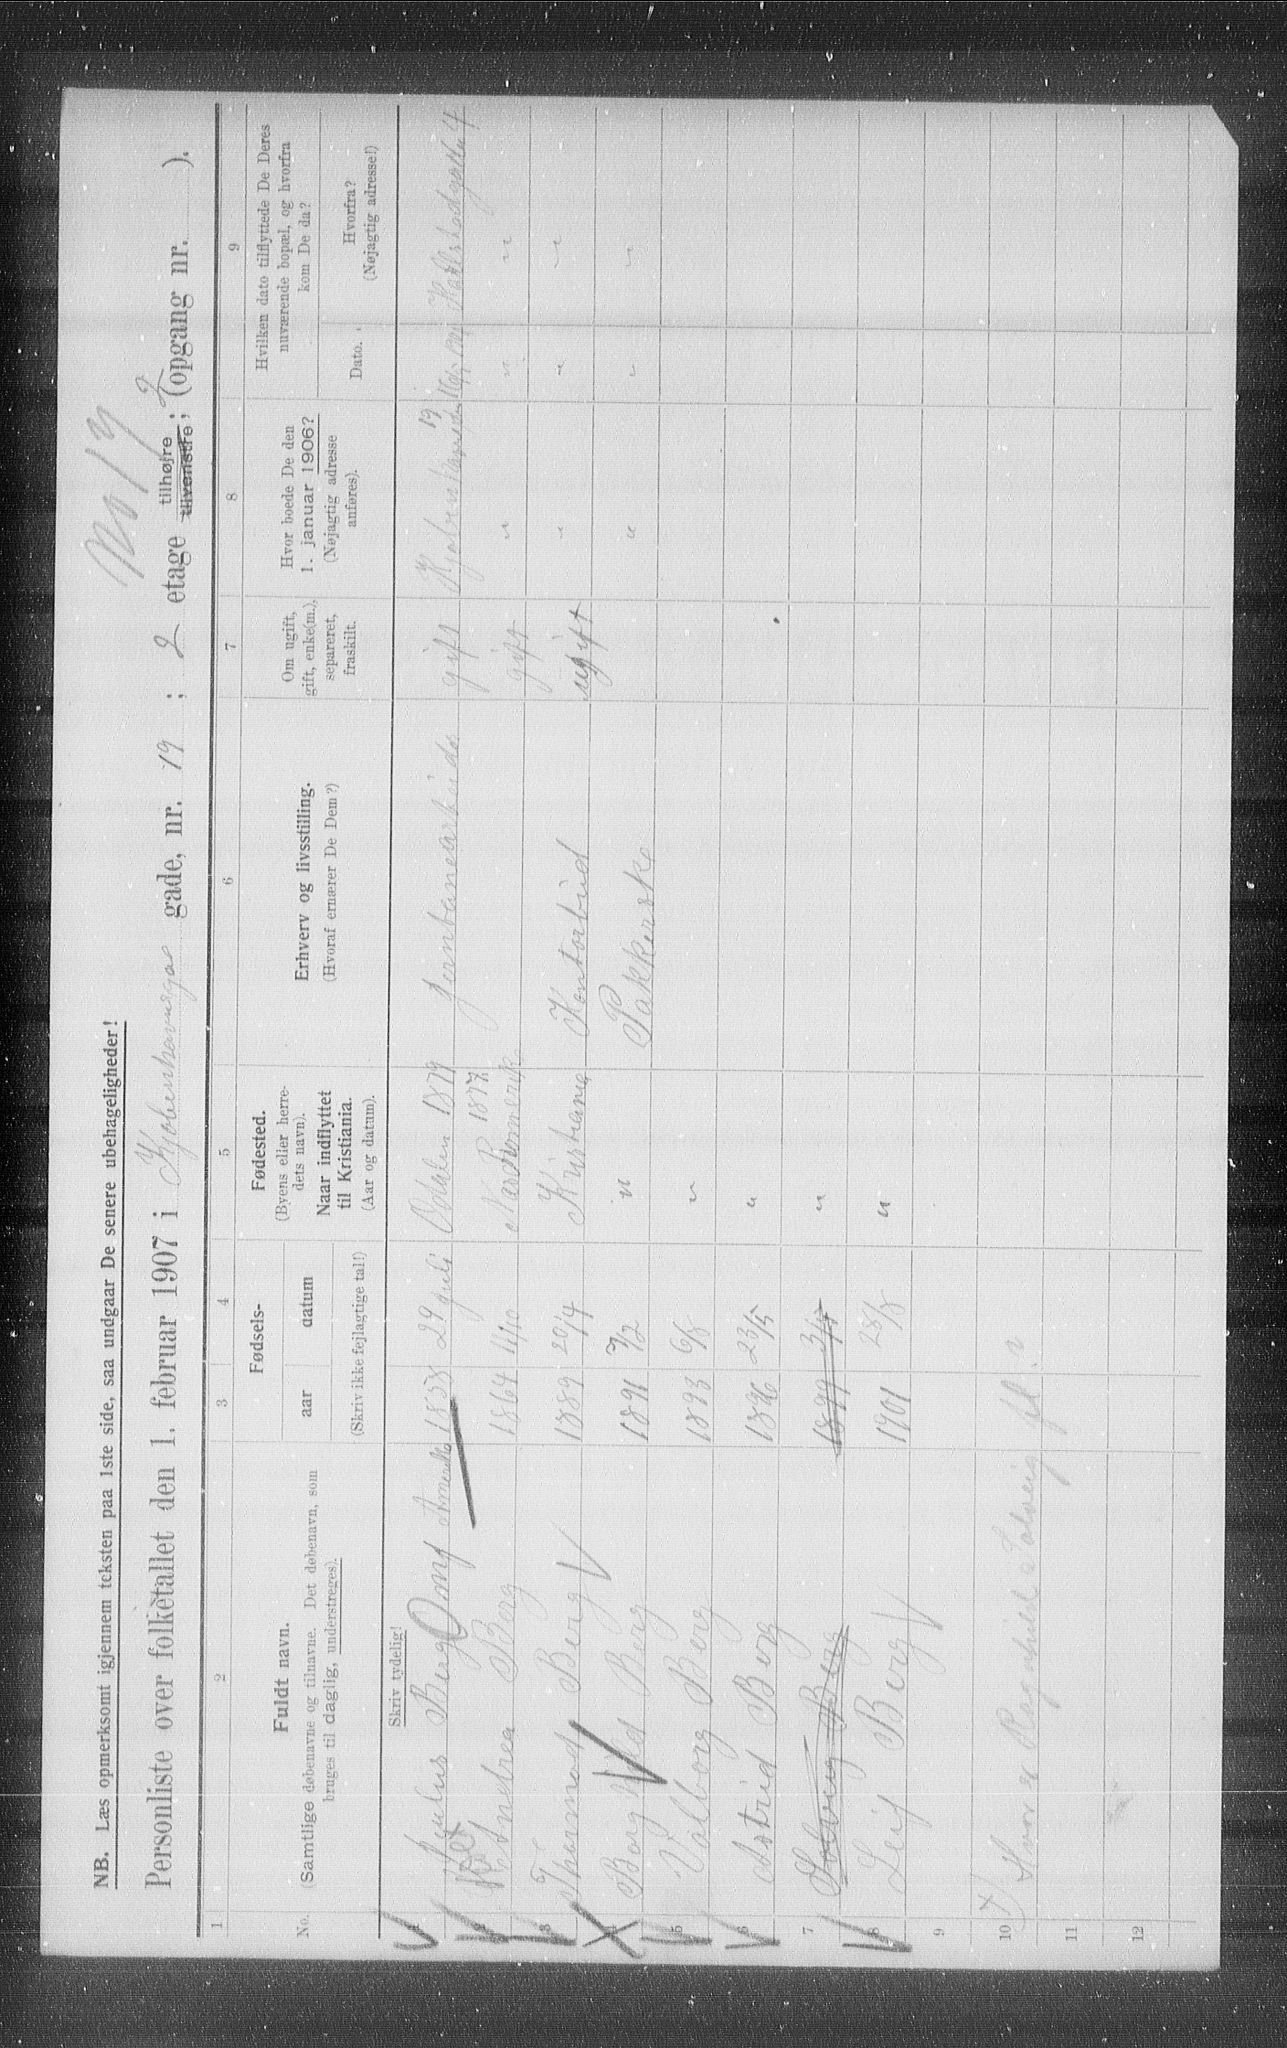 No 17
NB. Læs opmerksomt igjennem teksten paa 1ste side, saa undgaar De senere ubehageligheder!
Personliste over folketallet den 1. februar 1907 i Kjøbenhavnsga gade, nr. 19 ; 2 etage tilhøjre tilvenstre ; (opgang nr. ).
1 2 3 4 5 6 7 8 9
No. Fuldt navn. (Samtlige døbenavne og tilnavne. Det døbenavn, som bruges til daglig, understreges).
Fødsels- aar datum (Skriv ikke fejlagtige tal!)
Fødested. (Byens eller herredets navn). Naar indflyttet til Kristiania. (Aar og datum).
Erhverv og livsstilling. (Hvoraf ernærer De Dem?)
Om ugift, gift, enke(m.), separeret, fraskilt.
Hvor boede De den 1. januar 1906? (Nøjagtig adresse anføres).
Hvilken dato tilflyttede De Deres nuværende bopæl, og hvorfra kom De da?
Dato. Hvorfra? (Nøjagtig adresse!)
Skriv tydelig!
1 Julius Berg Amerika 1858 29 juli Odalen 1879 Jernbanearbeider gift 19
2 Andrea Berg 1864 4/10 Romerike 1877 gift " " "
3 Thormod Berg 1889 20/4 Kristiania Kontorbud ugift " " "
4 Borghild Berg 1891 7/2 " Pakkerske " " "
5 Valborg Berg 1893 6/8 "
6 Astrid Berg 1896 23/5 "
7 Solveig Berg 1899 3/4 "
8 Leif Berg 1901 28/8 "
9
10 x) Hvor er Ragnhild & Solveig fl.?
11
12